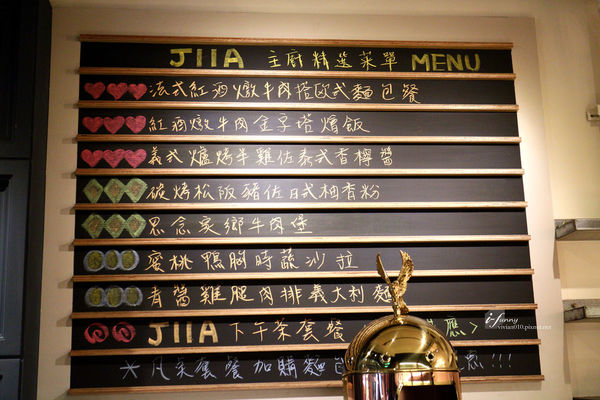 JIIA 主廚精選菜單 MENU
法式紅酒燉牛肉搭歐式麵包餐
紅酒燉牛肉金子塔燴飯
義式爐烤半雞佐泰式香檸醬
碳烤松阪豬佐日式柚香粉
思念家鄉牛肉堡
蜜桃鴨胸時蔬沙拉
青醬雞腿肉排義大利麵
JIIA 下午茶套餐 應>
*凡來套餐加購麵包 !!!
i-funny
vivian010.pixnet.net